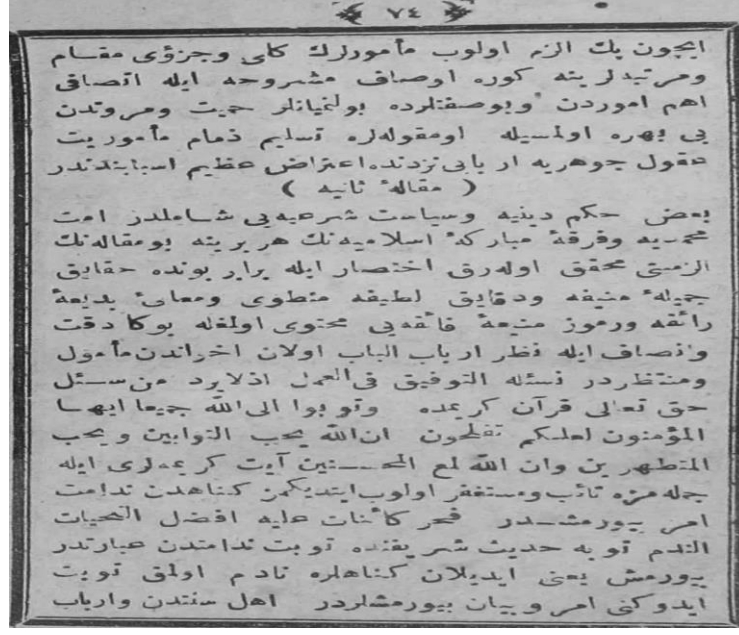 ٧٤
ایچون پك الزم اولوب مأمورلرك كلی وجزؤی مقام
ومرتبه لرینه كوره اوصاف مشروحه ایله اتصافی
اهم اموردن وبوصفتلرده بولنمیانلر حمیت ومروتدن
بی بهره اولمسیله اومقوله لره تسلیم زمام مأموریت
عقول جوهریه اربابی نزدنده اعتراض عظیم اسبابندندر
( مقالهٔ ثانیه )
بعض حكم دینیه وسیاست شرعیه یی شاملدر امت
محمدیه وفرقهٔ مباركهٔ اسلامیه نك هر برینه بومقاله نك
الزمیتی محقق اوله رق اختصار ایله برابر بونده حقایق
جمیلهٔ منیفه ودقایق لطیفه منطوی ومعانیٔ بدیعهٔ
رائقه ورموز منیعهٔ فائقه یی محتوی اولمغله بوكا دقت
وانصاف ایله نظر ارباب الباب اولان اخواندن مأمول
ومنتظردر نسئله التوفیق فی العمل اذ لا یرد من سئل
حق تعالی قرآن كریمده وتوبوا الی الله جمیعا ایها
المؤمنون لعلكم تفلحون ان الله یحب التوابین ویحب
المتطهرین وان الله لمع المحسنین آیت كریمه لری ایله
جمله مزه تائب ومستغفر اولوب ایتدیكمز كناهدن ندامت
امر بیورمشدر فخر كائنات علیه افضل التحیات
الندم توبه حدیث شریفنده توبت ندامتدن عبارتدر
بیورمش یعنی ایدیلان كناهلره نادم اولمق توبت
ایدوكنی امر وبیان بیورمشلردر اهل سنتدن وارباب